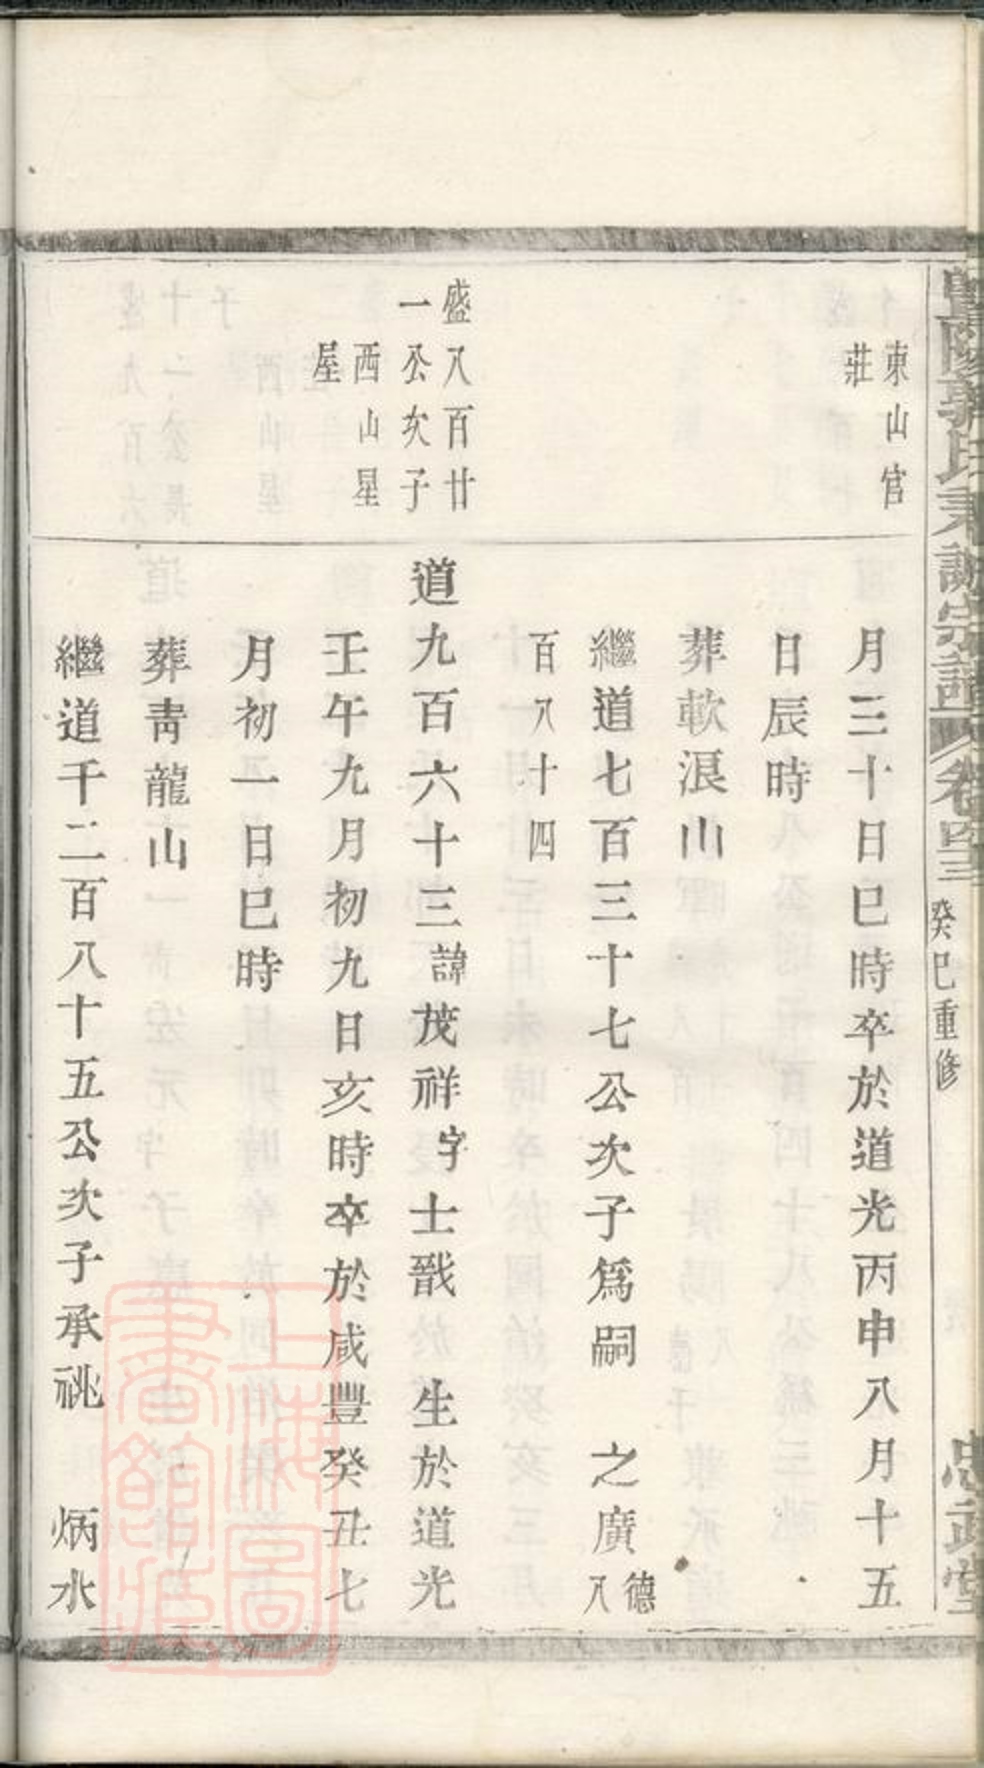 暨陽郭氏孝謝宗譜
卷四三
癸巳重修
忠武堂
東山官
莊
月三十日巳時卒於道光丙申八月十五
日辰時
葬歕浪山
繼道七百三十七公次子爲嗣 之廣德八
百八十四
盛八百廿
一公次子
西山星
屋
道九百六十三諱茂祥字士戩 生於道光
壬午九月初九日亥時卒於咸豐癸丑七
月初一日巳時
葬靑龍山
繼道千二百八十五公次子承祧 炳水
上海圖書館藏